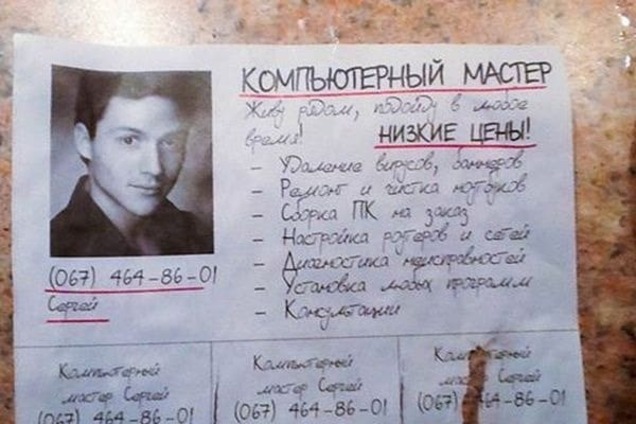 КОМПЬЮТЕРНЫЙ МАСТЕР
Живу рядом, подойду в любое
время! НИЗКИЕ ЦЕНЫ!
- Удаление вирусов, баннеров
- Ремонт и чистка ноутбуков
- Сборка ПК на заказ
- Настройка роутеров и сетей
- Диагностика неисправностей
- Установка любых программ
- Консультации
(067) 464-86-01
Сергей
Компьютерный
мастер Сергей
(067) 464-86-01
Компьютерный
мастер Сергей
(067) 464-86-01
Компьютерный
мастер Сергей
(067) 464-86-01